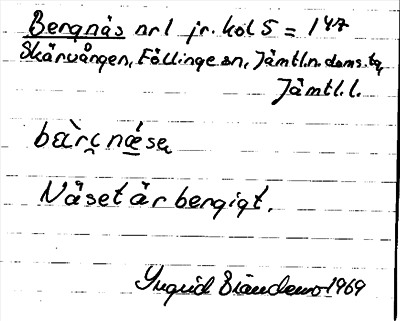 Bergnäs nr 1 jr. kol 5 = 147
Skärvången, Föllinge sn, Jämtl.n. doms. tg
Jämtl. l.
bèr̯næ̀sa̤
Näset är bergigt.
Ingrid 1969